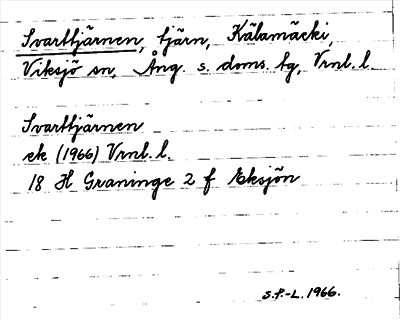 Svarttjärnen, tjärn, Kälamäcki,
Viksjö sn, Ång. s. doms. tg, Vrnl. l.
Svarttjärnen
ek (1966) Vrnl. l.
18 H Graninge 2 f Eksjön
S.P.-L. 1966.